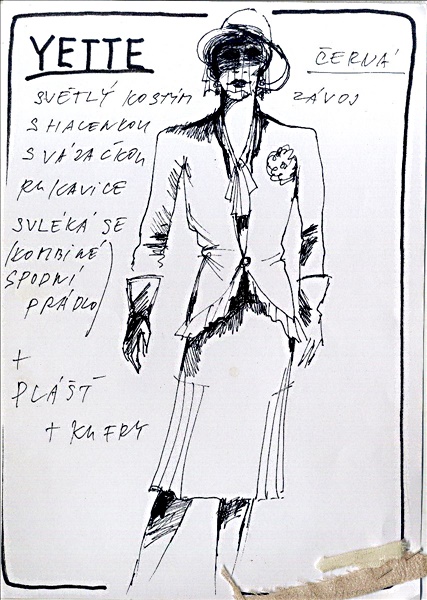 YETTE
ČERNÁ
SVĚTLÝ KOSTÝM
ZÁVOJ
S HALENKOU
S VÁZAČKOU
RUKAVICE
SVLÉKÁ SE
(KOMBINÉ
SPODNÍ
PRÁDLO)
+
PLÁŠŤ
+ KUFRY